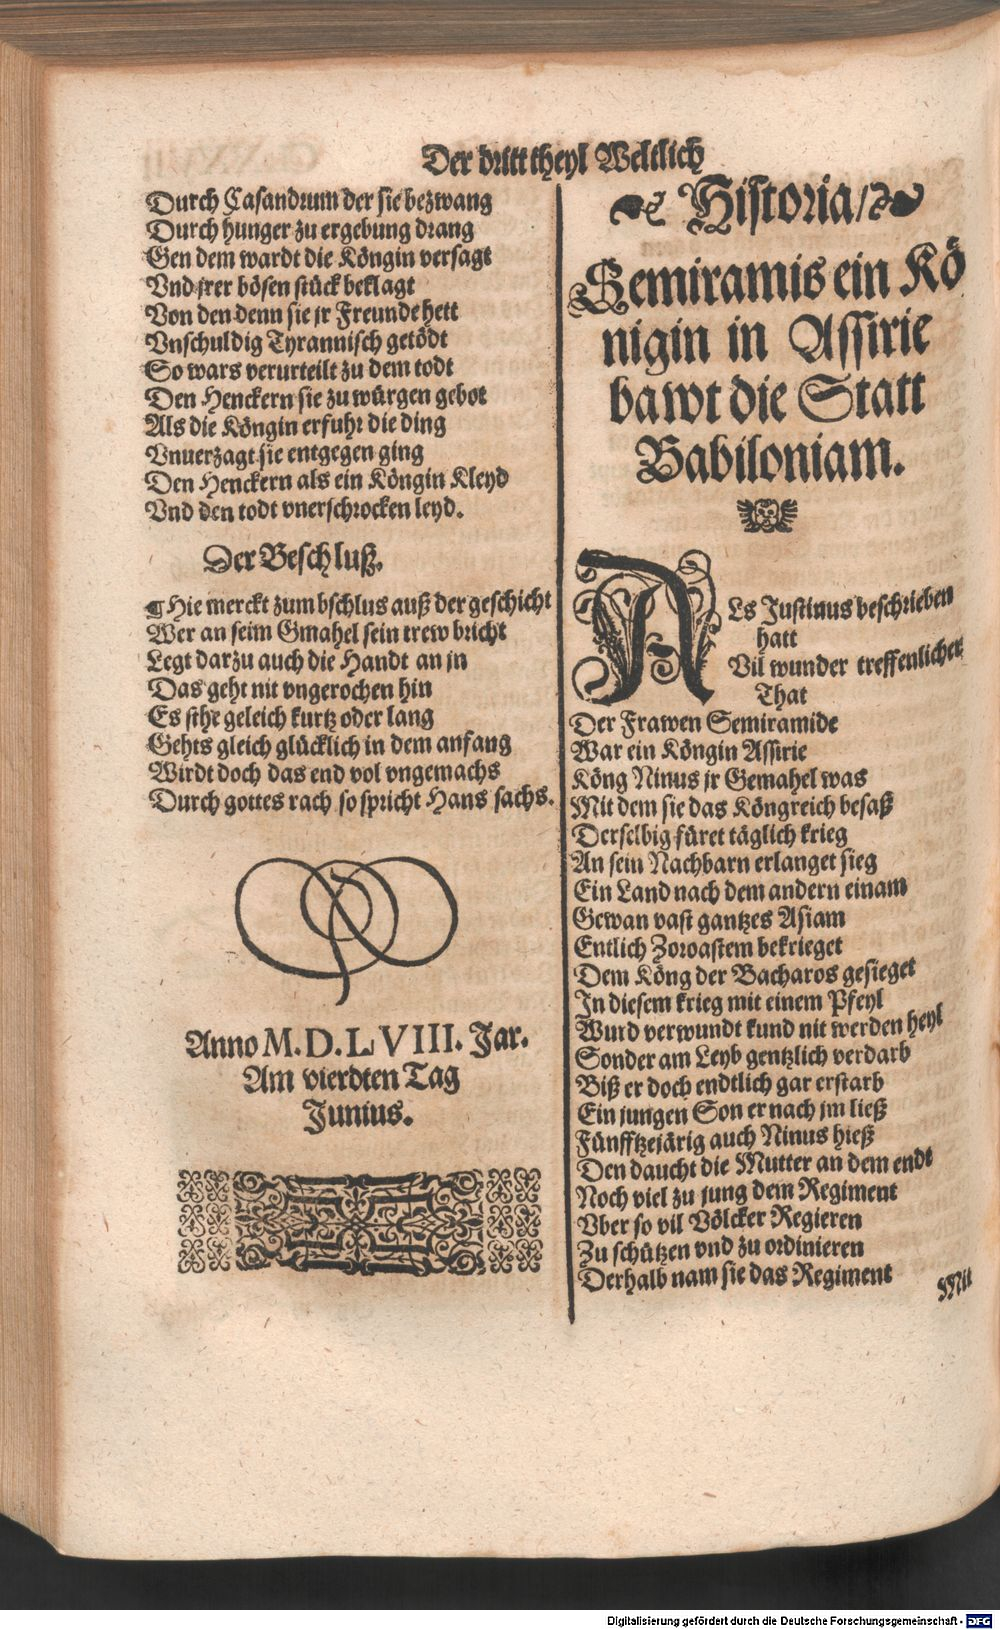 Der dritt theyl Weltlich
Durch Casandrum der sie bezwang
Durch hunger zu ergebung drang
Gen dem wardt die Köngin versagt
Vnd jrer bösen stück beklagt
Von den denn sie jr Freunde hett
Vnschuldig Tyrannisch getödt
So wars verurteilt zu dem todt
Den Henckern sie zu würgen gebot
Als die Köngin erfuhr die ding
Vnuerzagt sie entgegen ging
Den Henckern als ein Köngin Kleyd
Vnd den todt vnerschrocken leyd.
Der Beschluß.
¶ Hie merckt zum bschlus auß der geschicht
Wer an seim Gmahel sein trew bricht
Legt darzu auch die Handt an jn
Das geht nit vngerochen hin
Es sthe geleich kurtz oder lang
Gehts gleich glücklich in dem anfang
Wirdt doch das end vol vngemachs
Durch gottes rach so spricht Hans sachs.
Anno M.D.LVIII. Jar.
Am vierdten Tag
Junius.
Historia/
Semiramis ein Kö
nigin in Assirie
bawt die Statt
Babiloniam.
ALs Justinus beschrieben
hatt
Vil wunder treffenlicher
That
Der Frawen Semiramide
War ein Köngin Assirie
Köng Ninus jr Gemahel was
Mit dem sie das Köngreich besaß
Derselbig füret täglich krieg
An sein Nachbarn erlanget sieg
Ein Land nach dem andern einam
Gewan vast gantzes Asiam
Entlich Zoroastem bekrieget
Dem Köng der Bacharos gesieget
In diesem krieg mit einem Pfeyl
Wurd verwundt kund nit werden heyl
Sonder am Leyb gentzlich verdarb
Biß er doch endtlich gar erstarb
Ein jungen Son er nach jm ließ
Fünfftzejärig auch Ninus hieß
Den daucht die Mutter an dem endt
Noch viel zu jung dem Regiment
Vber so vil Völcker Regieren
Zu schützen vnd zu ordinieren
Derhalb nam sie das Regiment
Mit
Digitalisierung gefördert durch die Deutsche Forschungsgemeinschaft - DFG